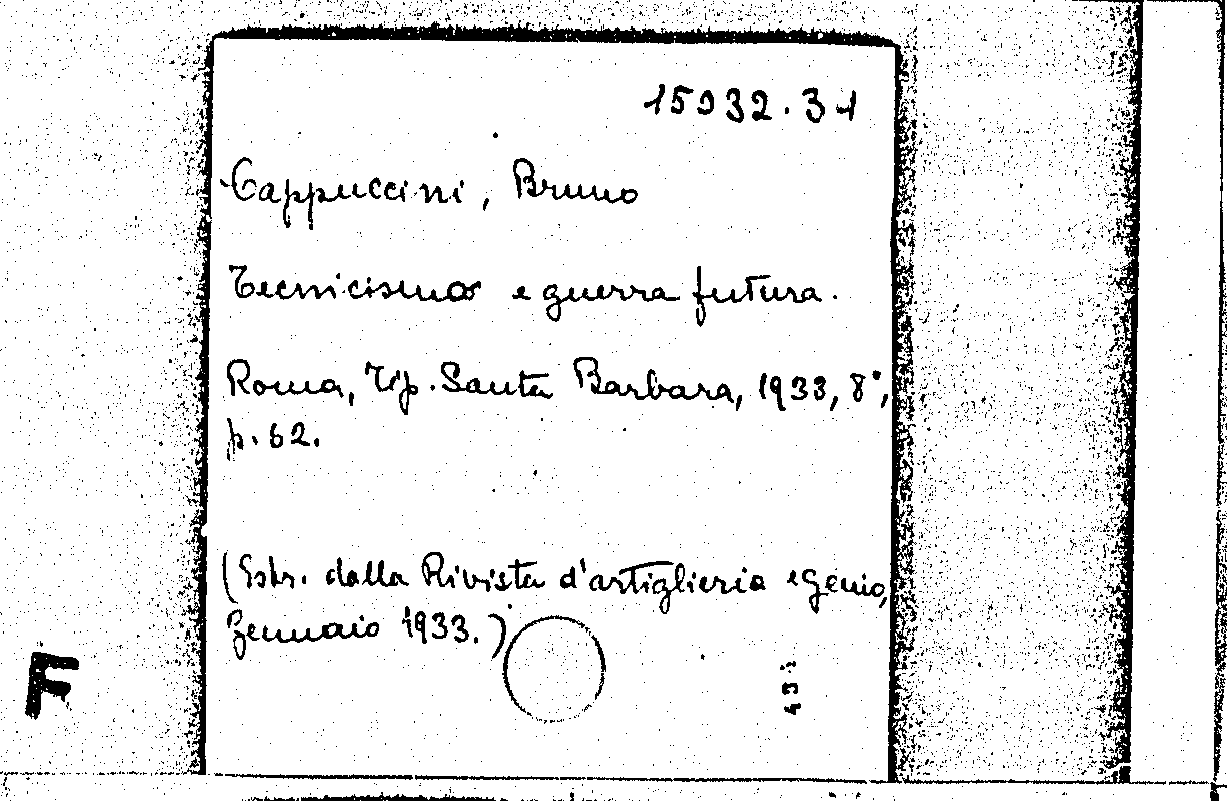 15932.31
Cappuccini, Bruno
Tecnicismo e guerra futura.
Roma, Tip. Santa Barbara, 1933, 8°,
p. 62.
(Estr. dalla Rivista d'artiglieria e genio,
gennaio 1933.)
F